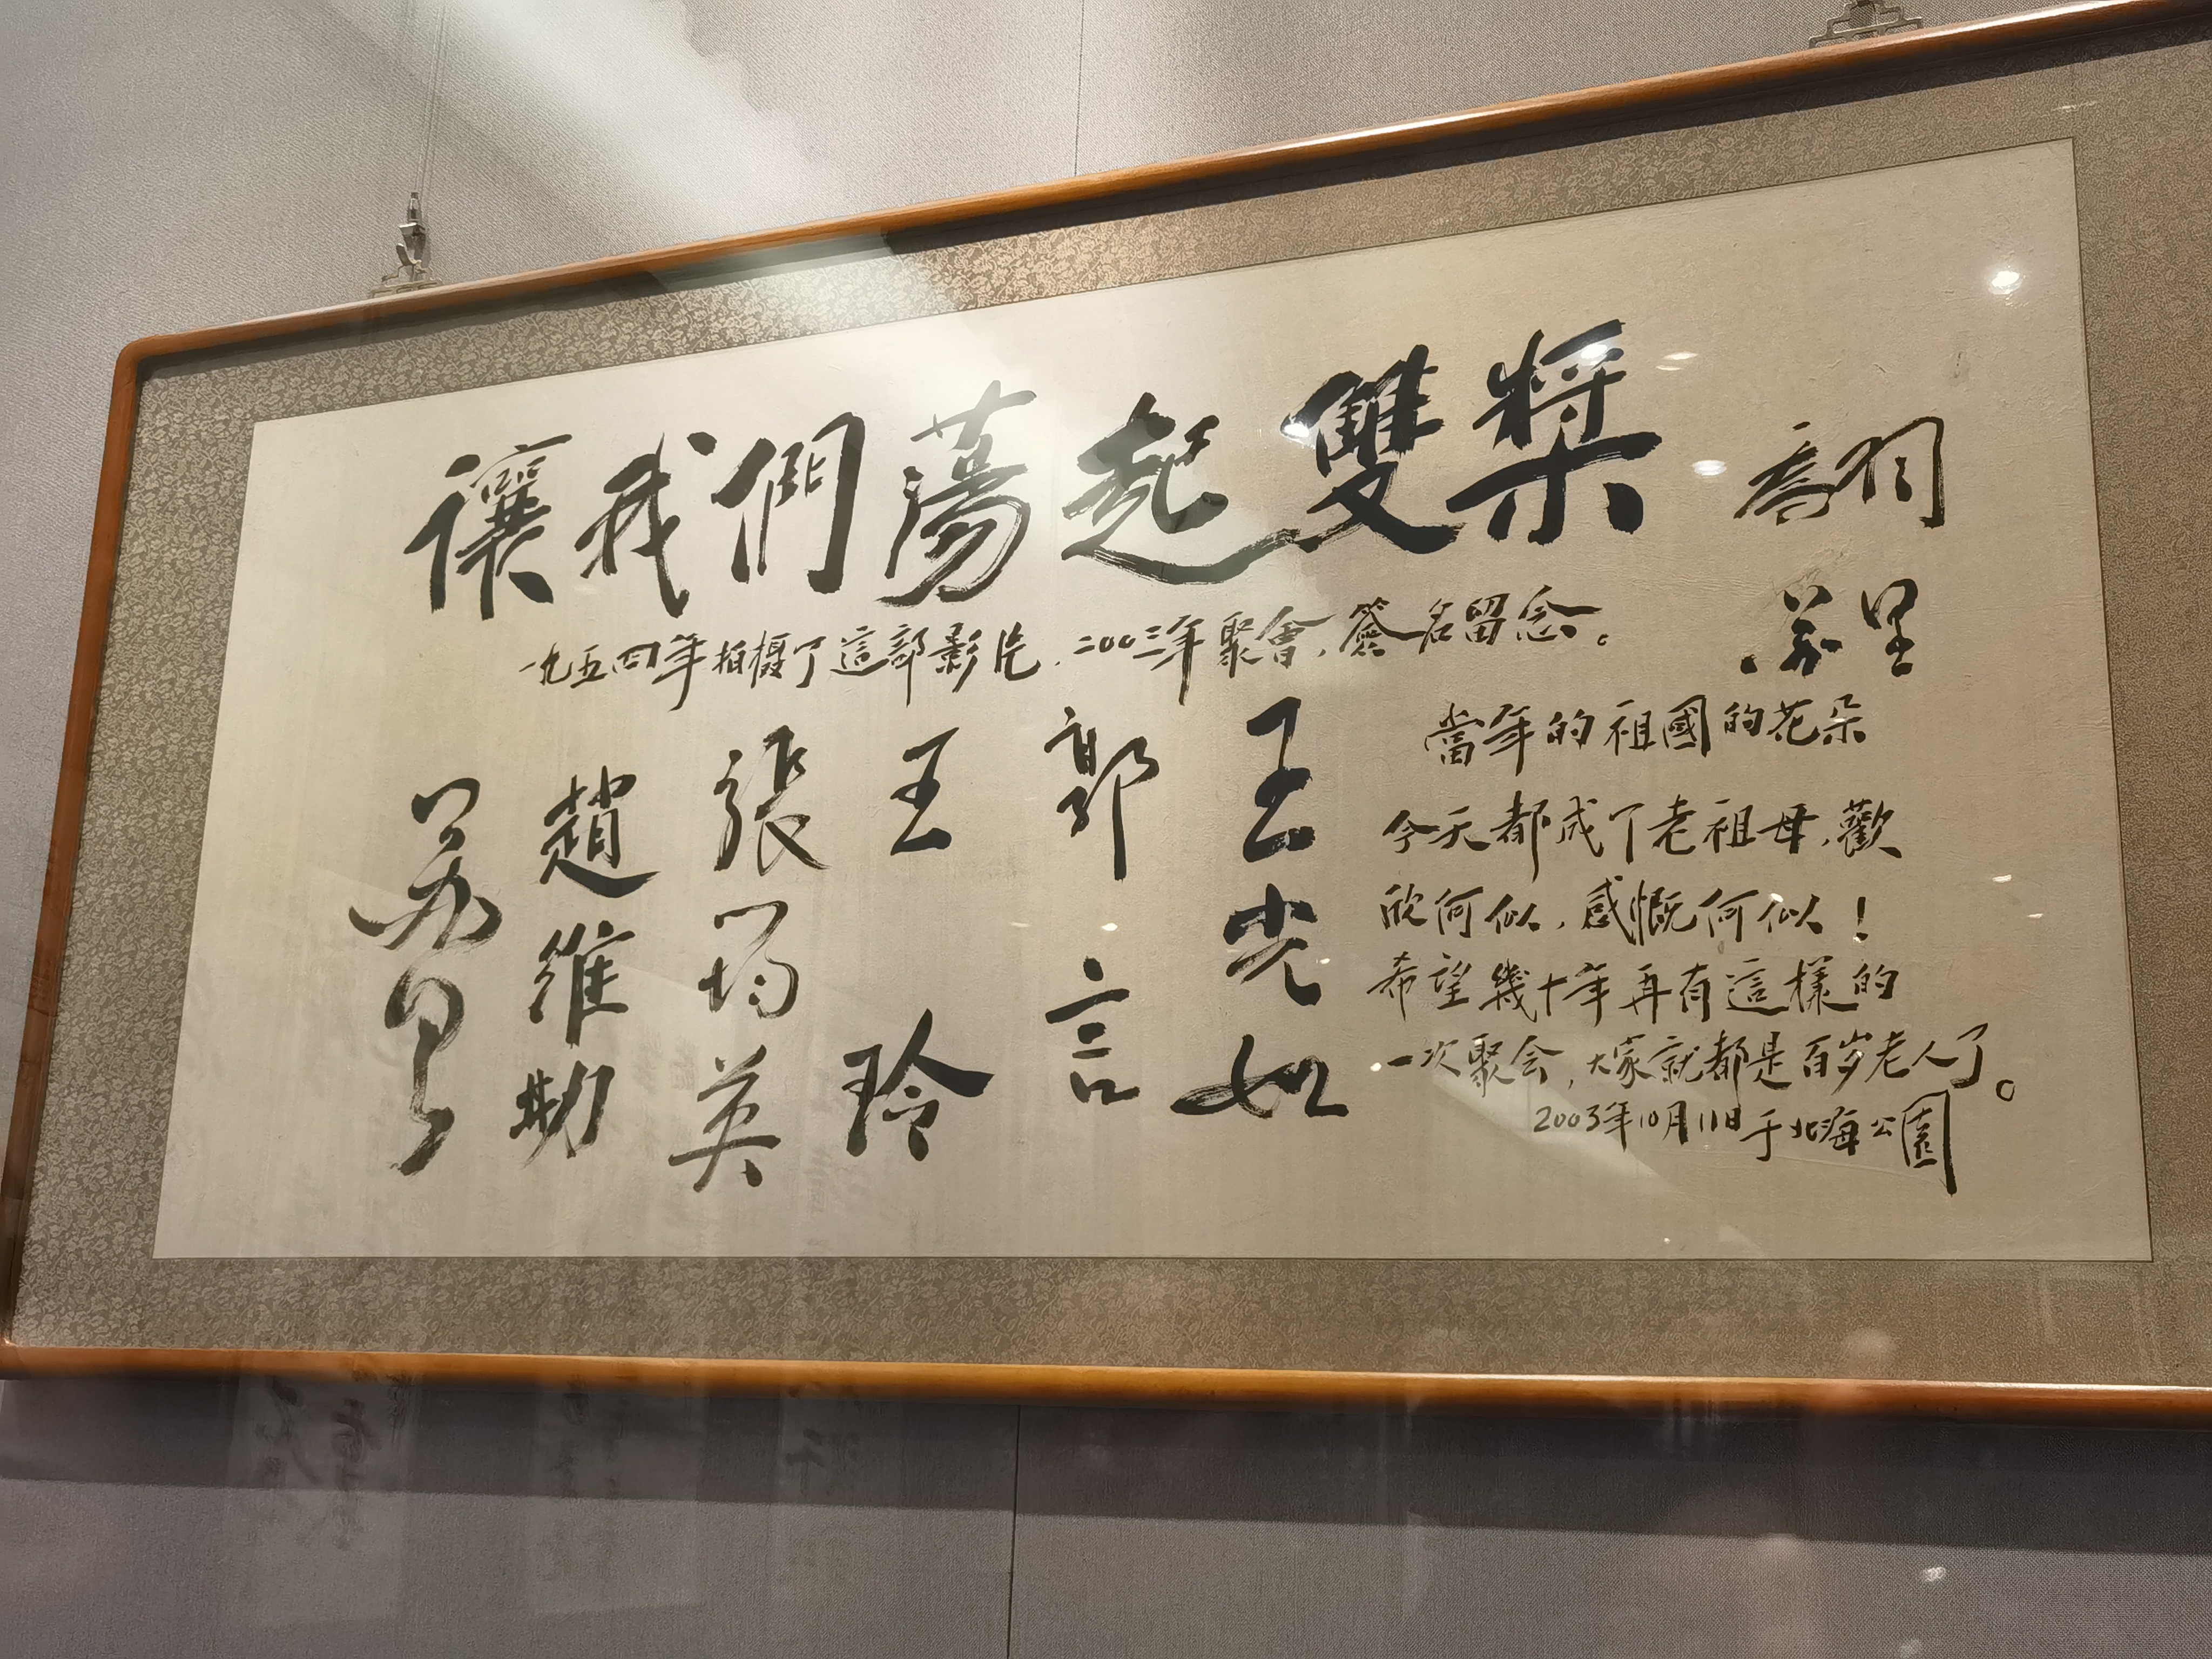 讓我們蕩起雙槳 喬羽
一九五四年拍攝了這部影片，二〇〇三年聚會，簽名留念。 蘇里
當年的祖國的花朵
今天都成了老祖母，歡
欣何似，感慨何似！
希望幾十年再有這樣的
一次聚会，大家就都是百岁老人了。
2003年10月11日于北海公園
王光如
郭言
王玲
張筠英
趙維勤
蘇里